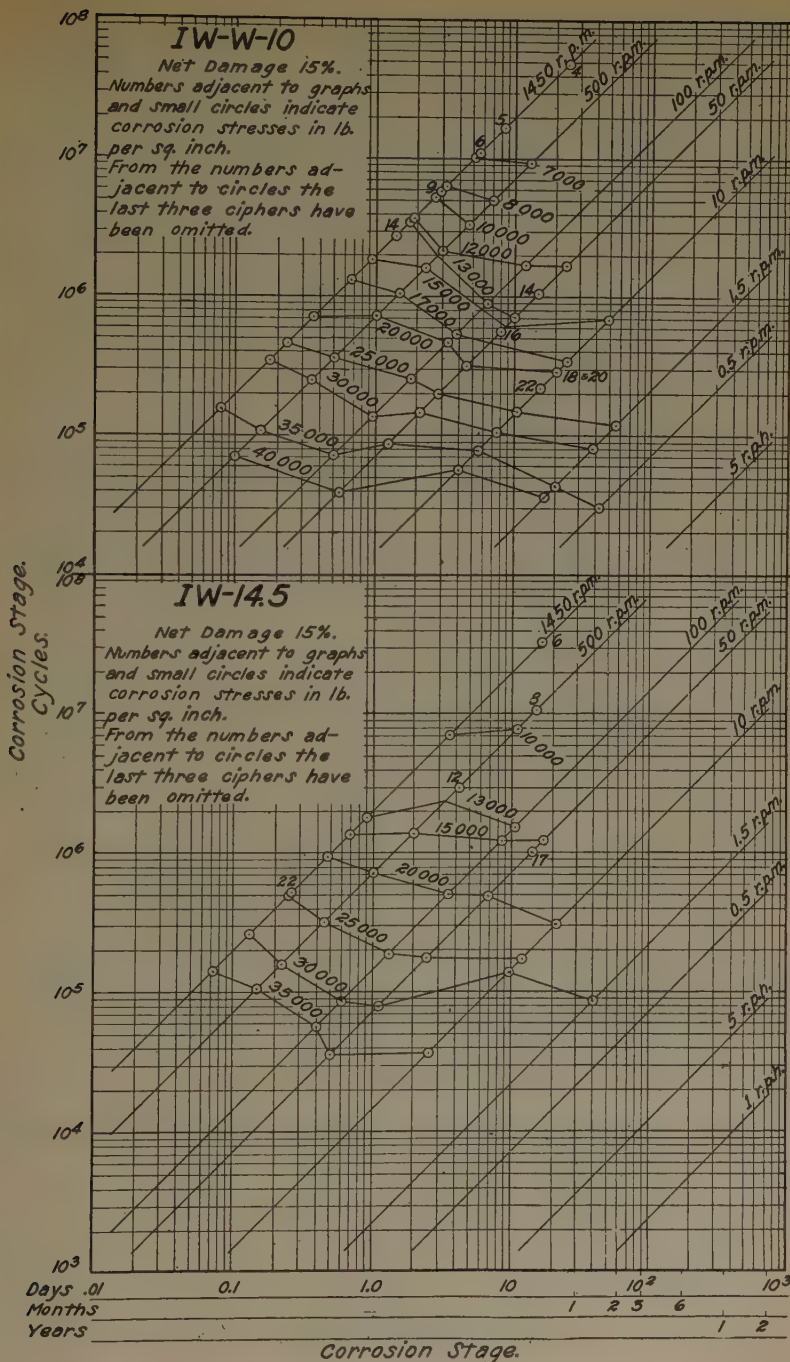 10⁸
IW-W-10
Net Damage 15%.
Numbers adjacent to graphs
and small circles indicate
corrosion stresses in lb.
per sq. inch.
From the numbers ad-
jacent to circles the
last three ciphers have
been omitted.
1450 r.p.m.
500 r.p.m.
100 r.p.m.
50 r.p.m.
10 r.p.m.
1.5 r.p.m.
0.5 r.p.m.
5 r.p.h.
4
5
6
10⁷
7000
8000
9
10000
14
12000
13000
14
15000
10⁶
17000
16
20000
18&20
25000
22
30000
10⁵
35000
40000
10⁴
10⁸
IW-14.5
Net Damage 15%.
Numbers adjacent to graphs
and small circles indicate
corrosion stresses in lb.
per sq. inch.
From the numbers ad-
jacent to circles the
last three ciphers have
been omitted.
1450 r.p.m.
500 r.p.m.
100 r.p.m.
50 r.p.m.
10 r.p.m.
1.5 r.p.m.
0.5 r.p.m.
5 r.p.h.
1 r.p.h.
6
8
10⁷
10000
12
13000
15000
10⁶
17
20000
22
25000
30000
10⁵
35000
10⁴
10³
Corrosion Stage.
Cycles.
Days .01 0.1 1.0 10 10² 10³
Months 1 2 3 6
Years 1 2
Corrosion Stage.